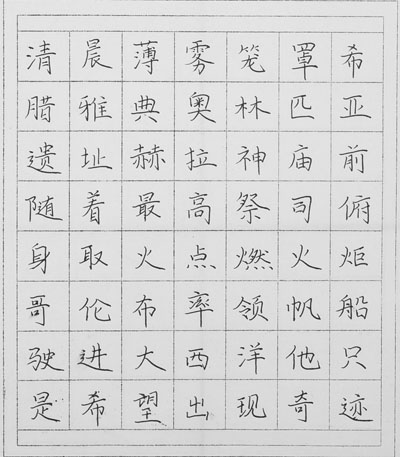 清晨薄雾笼罩希
腊雅典奥林匹亚
遗址赫拉神庙前
随着最高祭司俯
身取火点燃火炬
哥伦布率领帆船
驶进大西洋他只
是希望出现奇迹